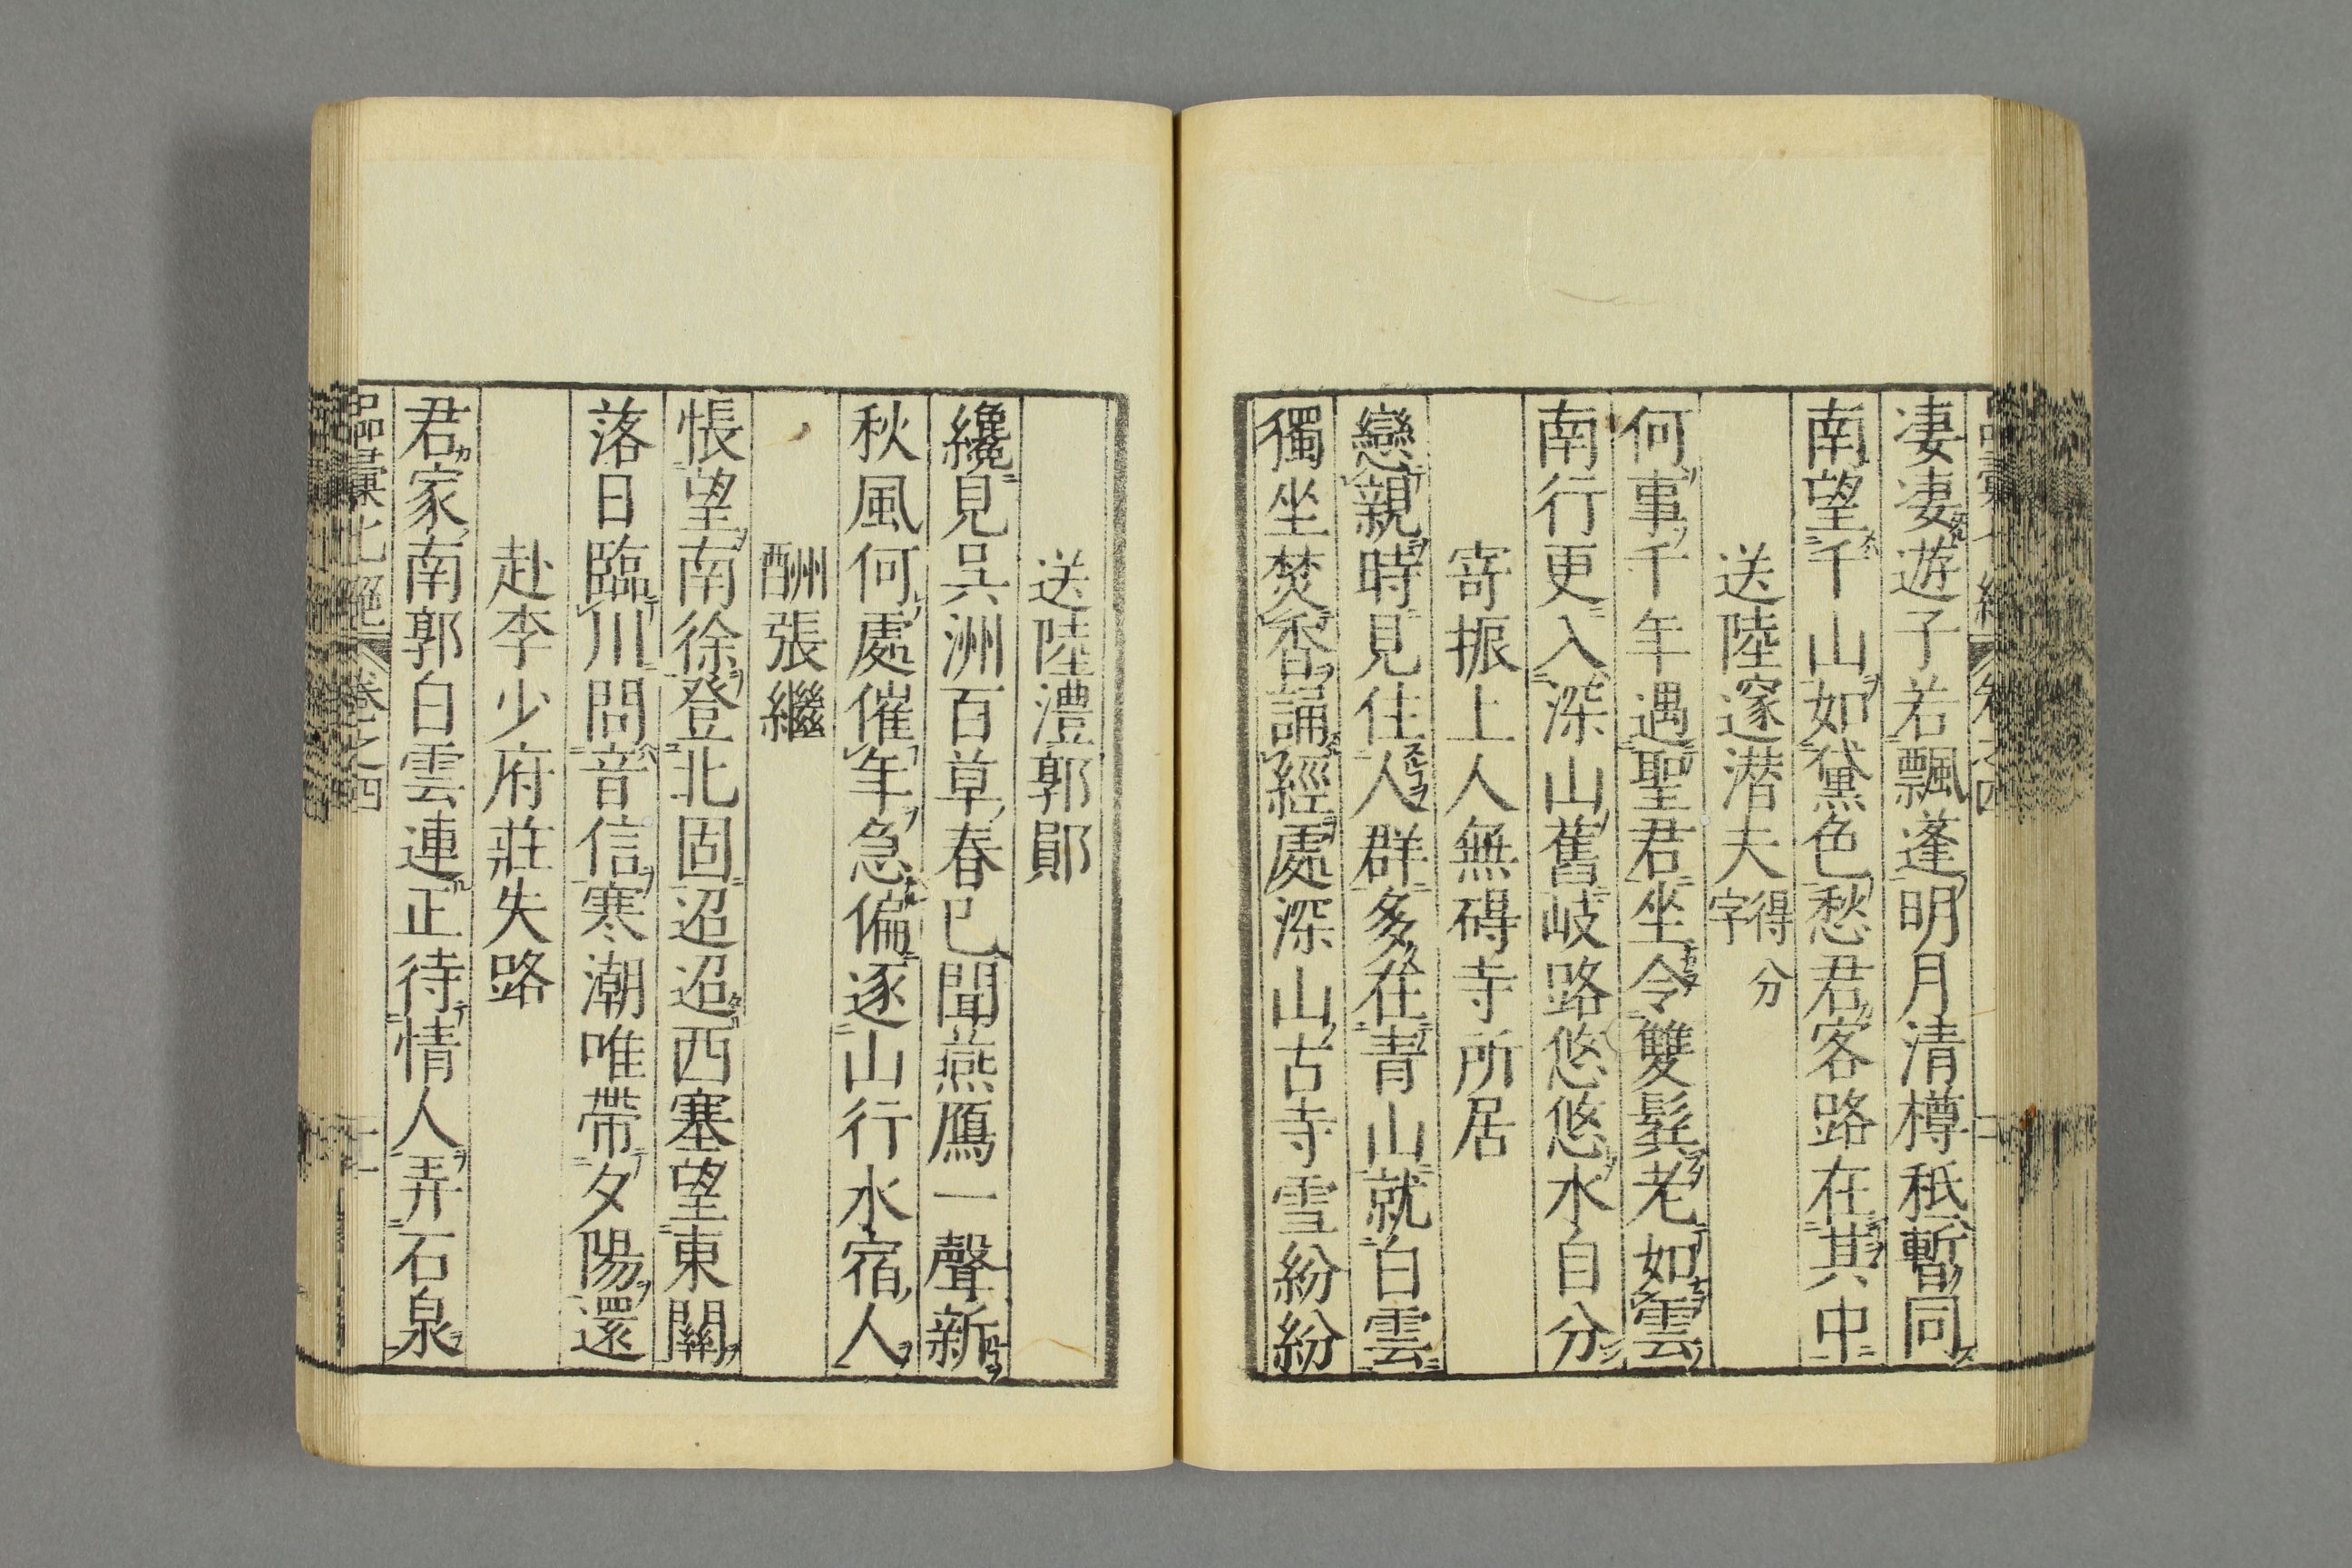 凄凄遊子若飄蓬明月清樽秖暫同
南望千山如黛色愁君客路在其中
送陸鄰遂潜夫得分字
何事千年遇聖君坐令雙鬂老如雲
南行更入深山舊岐路悠悠水自分
寄振上人無碍寺所居
戀親時見住人群多在青山就白雲
獨坐焚香誦經處深山古寺雪紛紛
送陸澧郭鄖
纔見呉洲百草春已聞燕鴈一聲新
秋風何處催年急偏逐山行水宿人
酬張繼
悵望南徐登北固迢迢西塞望東關
落日臨川問音信寒潮唯帶夕陽還
赴李少府莊失路
君家南郭白雲連正待情人弄石泉
品彙七絶 卷之四 十一